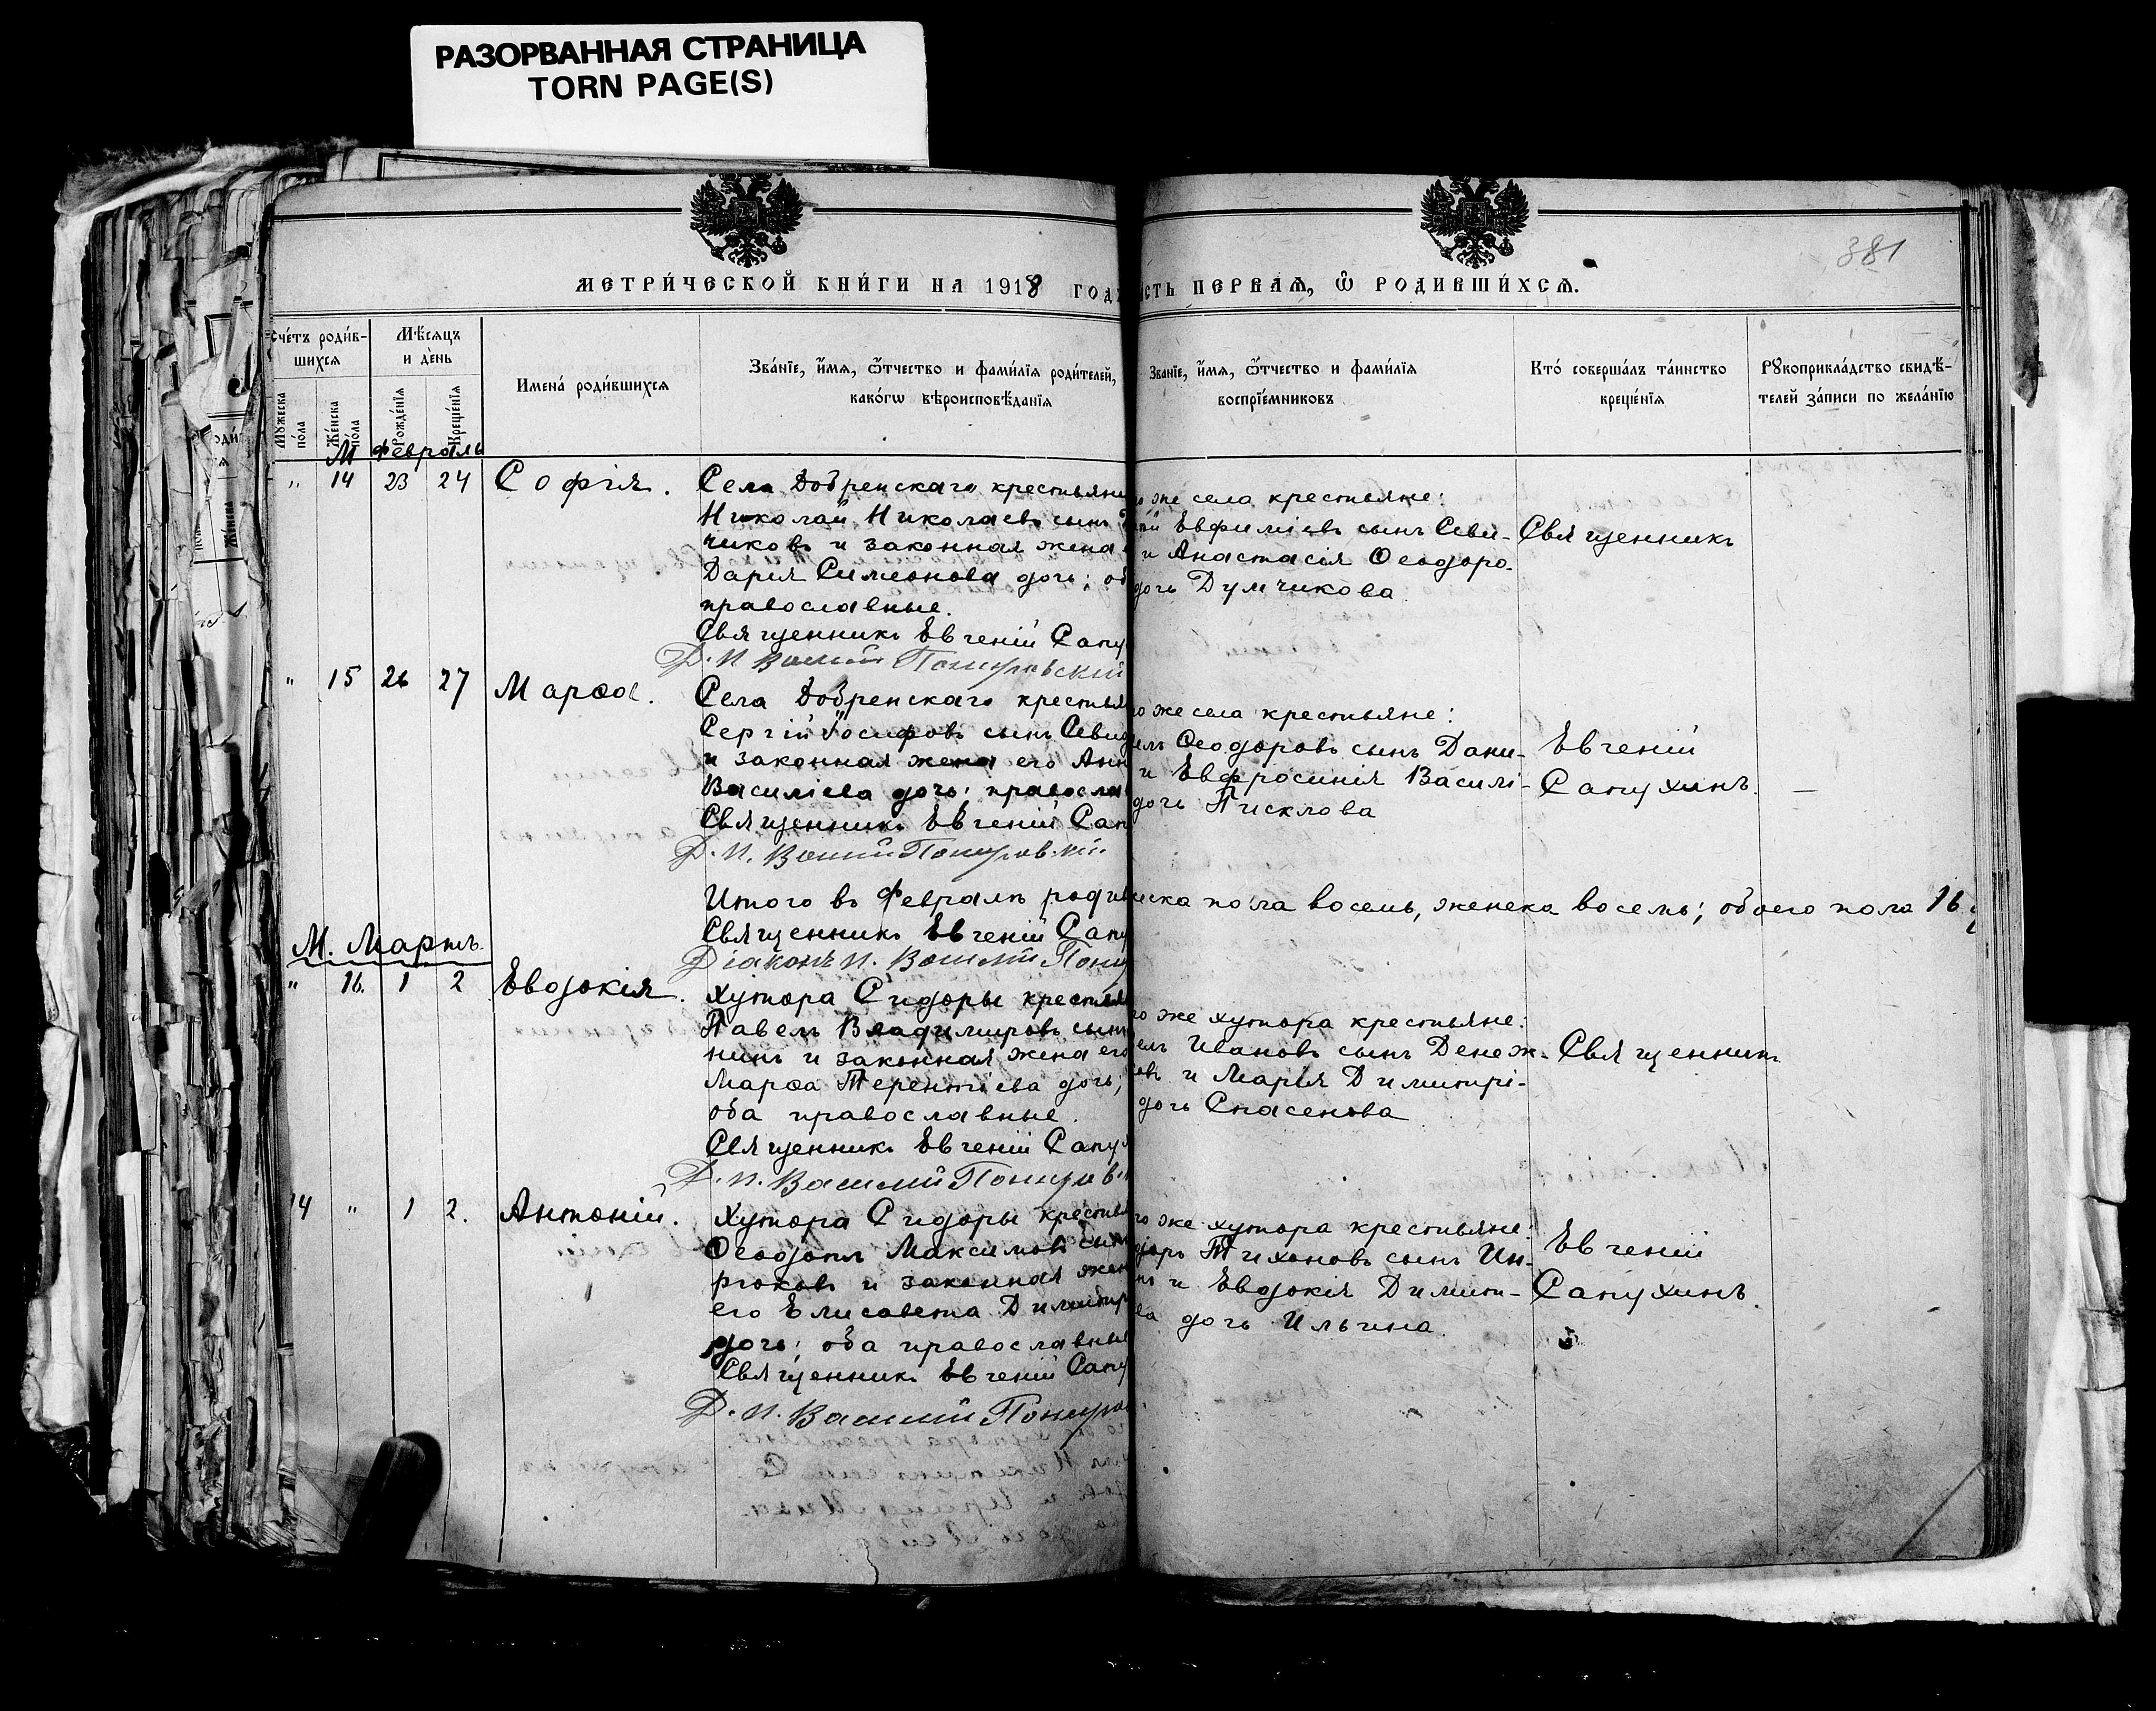 РАЗОРВАННАЯ СТРАНИЦА
TORN PAGE(S)
381
МЕТРИ́ЧЕСКОЙ КНИ́ГИ НА 1918 ГОД
СТЬ ПЕРВАѦ, Ѿ РОДИВШИ́ХСѦ.
Счéтъ роди́в-
шихсѧ
Мѣ́сѧцъ
и дéнь
Мꙋ́жеска пóла
Жéнска пóла
Рождéнїѧ
Крещéнїѧ
Именá роди́вшихсѧ
Звáнїе, и́мѧ, ѻ́тчество и фами́лїѧ роди́телей,
какóгѡ вѣроисповѣ́данїѧ
Звáнїе, и́мѧ, ѻ́тчество и фами́лїѧ
воспрїéмниковъ
Ктó совершáлъ тáинство
крещéнїѧ
Рꙋкоприклáдство свидѣ́-
телей зáписи по желáнїю
М Февраль
" 14 23 24 Софія.
Села Добренскаго крестьяни
Николай Николаевъ сынъ
чиковъ и законная жена
Дарія Симеонова дочь; об
православные.
Священникъ Евгеній Сапу
Д. П. Василій Понуровскій
о же села крестьяне:
Евфиміевъ сынъ Севи-
и Анастасія Ѳеодоро-
дочь Думчикова
Священникъ
" 15 26 27 Марѳа.
Села Добренскаго крестья
Сергій Іосифовъ сынъ Севид
и законная жена его Анн
Василіева дочь; правосла
Священникъ Евгеній Сап
Д. П. Василій Понуровскій
о же села крестьяне:
Ѳеодоровъ сынъ Дани-
и Евфросинія Василі-
дочь Писклова
Евгеній
Сапухинъ.
—
Итого въ Февралѣ родив
еска пола восемь, женска восемь; обоего пола 16
Священникъ Евгеній Сапу
Діаконъ П. Василій Пону
М. Мартъ.
" 16. 1 2 Евдокія.
Хутора Сидоры крестья
Павелъ Владимировъ сынъ
нинъ и законная жена его
Марѳа Терентіева дочь;
оба православные.
Священникъ Евгеній Сапу
Д. П. Василій Понуров
о же хутора крестьяне:
елъ Ивановъ сынъ Денеж-
овъ и Марія Димитрі-
дочь Спасенова
Священникъ
14 " 1 2. Антоній.
Хутора Сидоры крестья
Ѳеодотъ Максимовъ сынъ
рюковъ и законная жен
его Елисавета Димитр
дочь; оба православны
Священникъ Евгеній Сапу
Д. П. Василій Понуров
о же хутора крестьяне:
доръ Тихоновъ сынъ Ин-
нъ и Евдокія Димит-
ва дочь Ильина.
Евгеній
Сапухинъ.